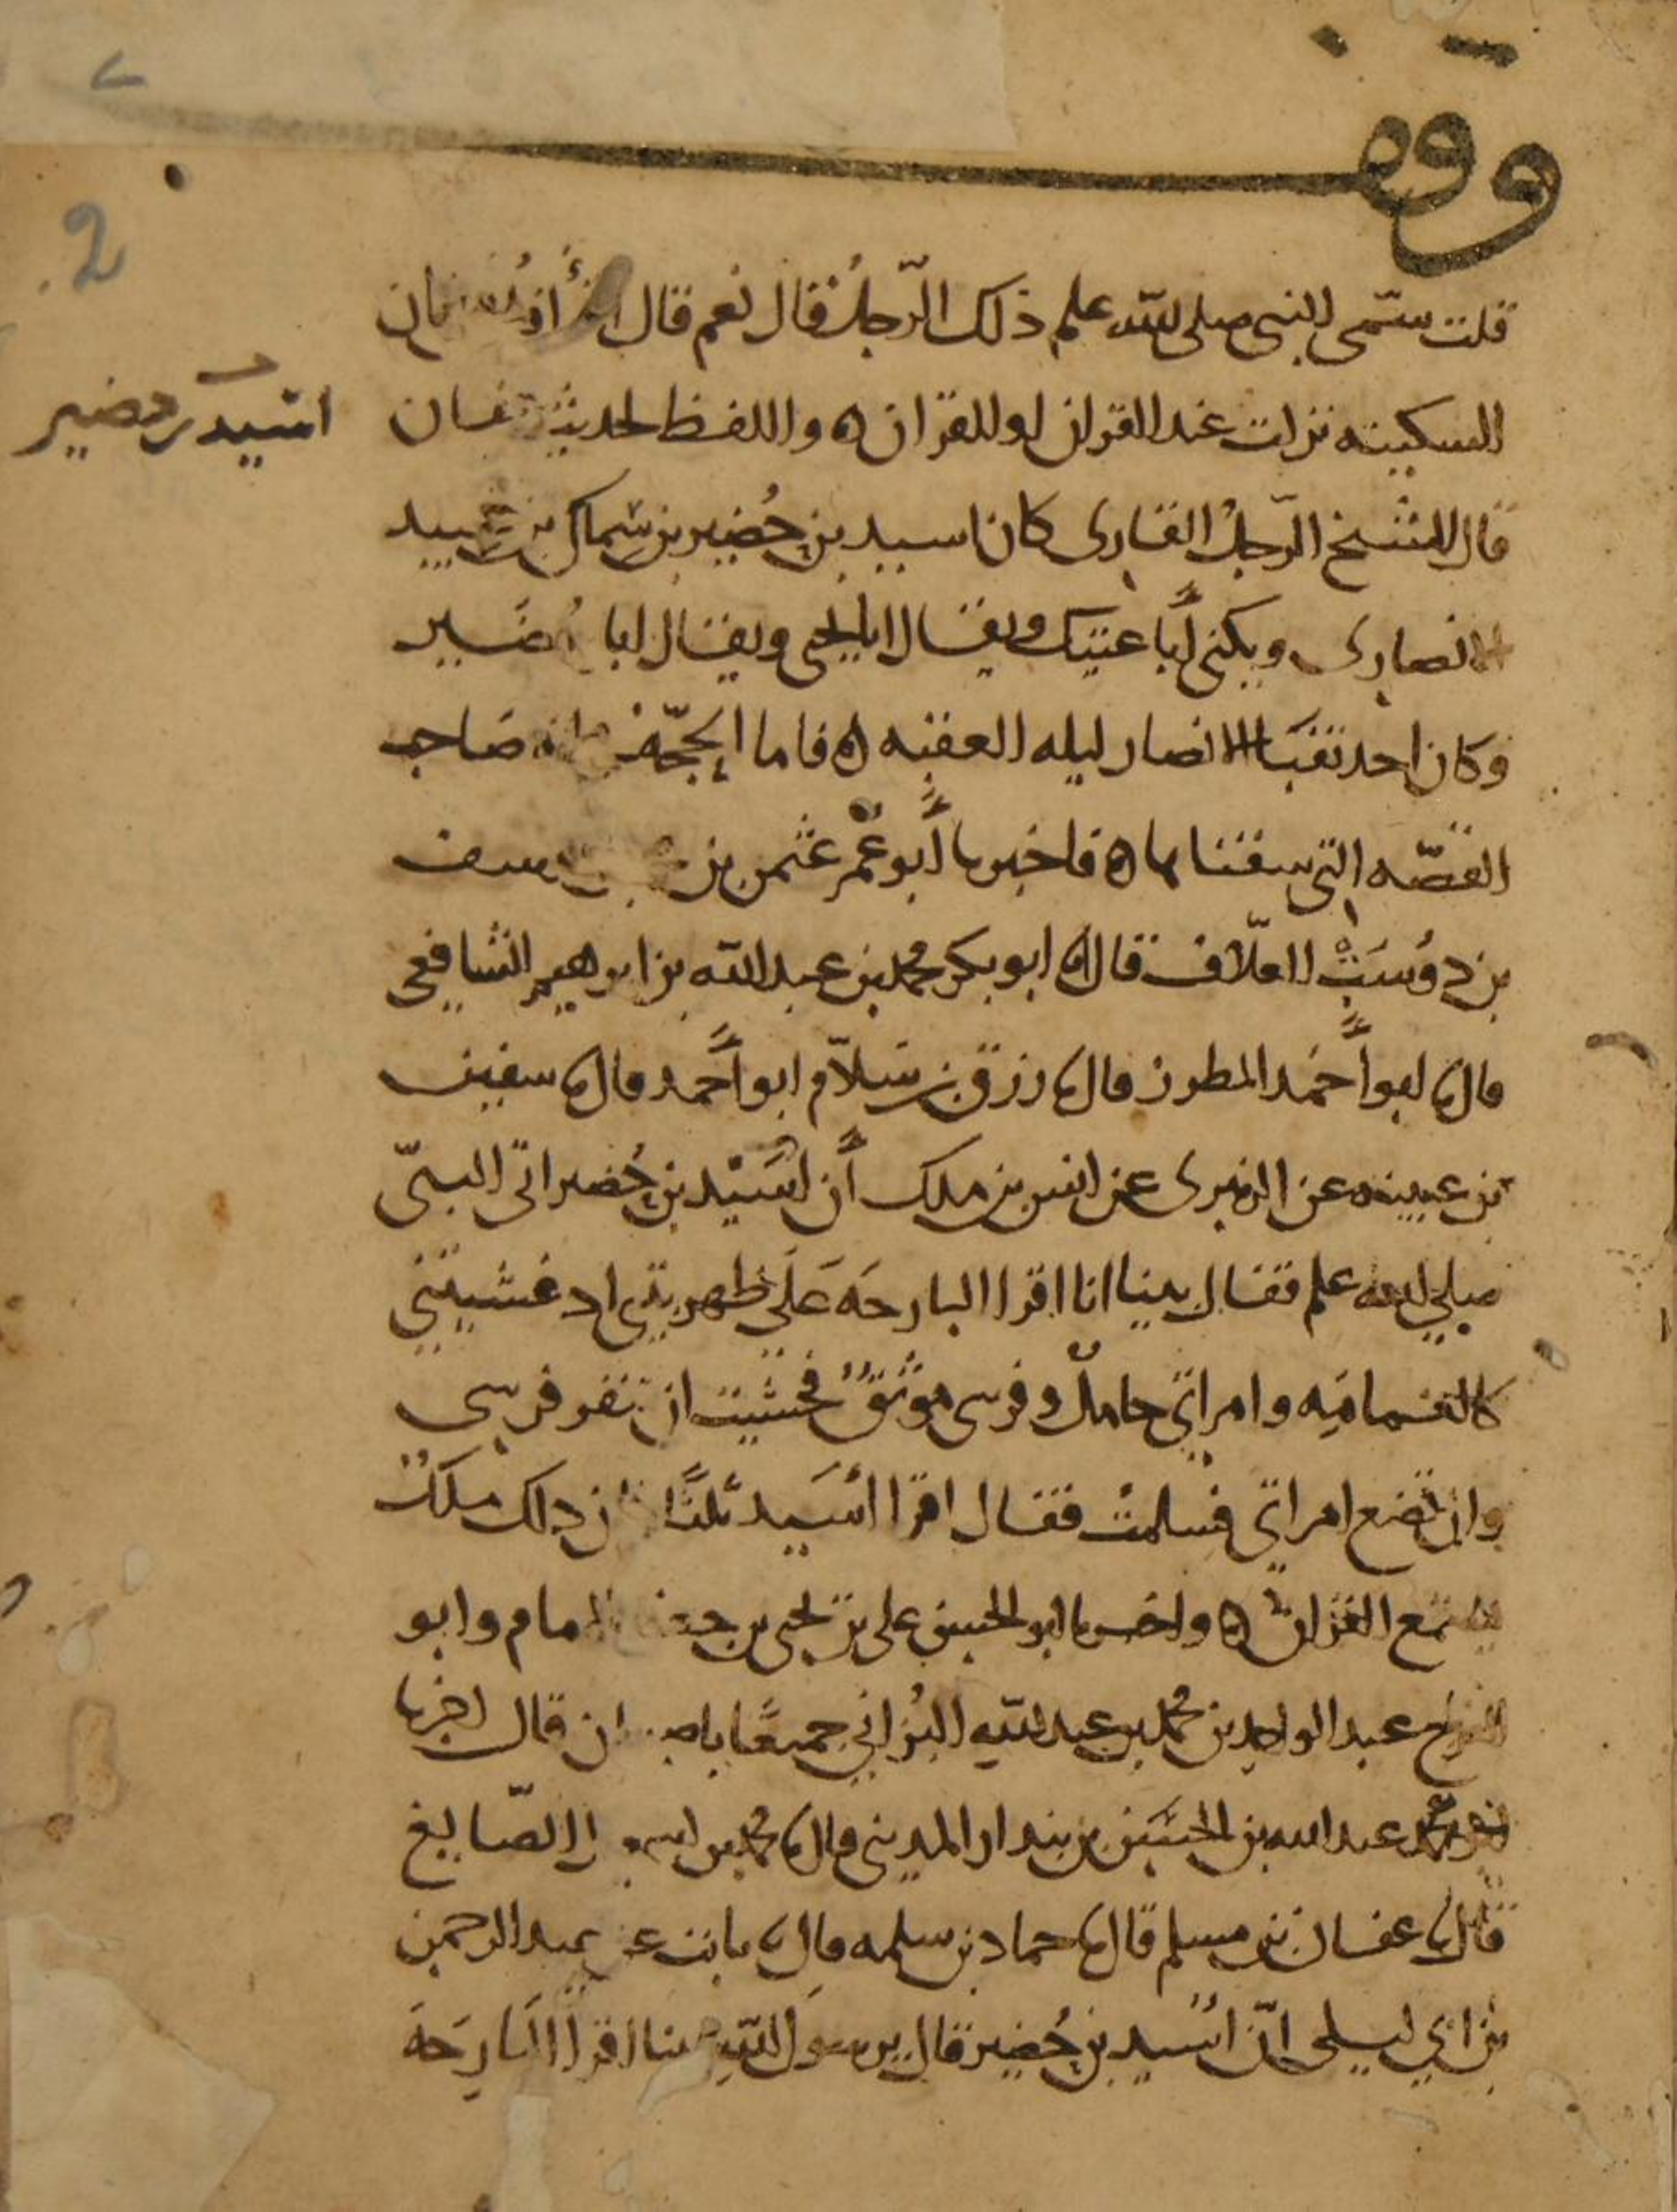 وقف
2
قلت سمى النبى صلى الله علىم ذلك الرجل قال نعم قال اقرأ فلان فان
السكينه نزلت عند القران او للقران ه واللفظ لحديث عفان
اسيد بن حضير
قال الشيخ الرجل القارى كان اسيد بن حضير بن سماك بن عبيد
الانصارى ويكنى أبا عتيك ويقال ابا يحيى ويقال ابا حضير
وكان احد نقبا الانصار ليله العقبه ه فاما الحجة فى انه صاحب
القصه التي سقناها ه فاخبرنا أبو عمر عثمن بن محمد بن يوسف
بن دوست العلاف قال نا ابو بكر محمد بن عبد الله بن ابرهيم الشافعى
قال نا ابو أحمد المطرز قال نا رزق بن سلام ابو أحمد قال نا سفين
بن عيينه عن الزهرى عن انس بن ملك أن اسيد بن حضير اتى النبى
صلى الله علىم فقال بينا انا اقرا البارحة على ظهر بيتى اد غشيتني
كالغمامه وامراتي حامل وفرسى موثق فخشيت ان تنفر فرسى
وان تضع امراتي فسلمت فقال اقرا اسيد ثلثا فان دلك ملك
يستمع القران ه واخبرنا ابو الحسين على بن يحيى بن جعفر الامام وابو
الفرج عبد الواحد بن محمد بن عبد الله البزاني جميعا باصبهان قال اخبرنا
ابو محمد عبد الله بن الحسين بن بندار المديني قال نا محمد بن اسمعيل الصايغ
قال نا عفان بن مسلم قال نا حماد بن سلمه قال نا ثابت عن عبد الرحمن
بن ابي ليلى ان اسيد بن حضير قال يرسول الله بينا اقرا البارحة